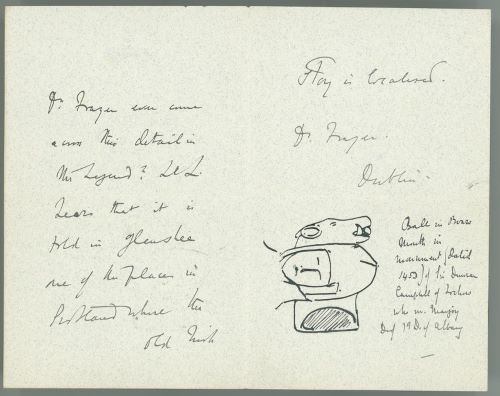 Dr. Frazer ever come
across this detail in
the Legend?
hears that it is
told in Glenshee
one of the places in
Scotland where the
old Irish
Story is localised.
Dr. Frazer.
Dublin.
Ball in Boars
Mouth in
monument (dated
1453) of Sir Duncan
Campbell of Lochow
who m. Marjory
D. of Albany